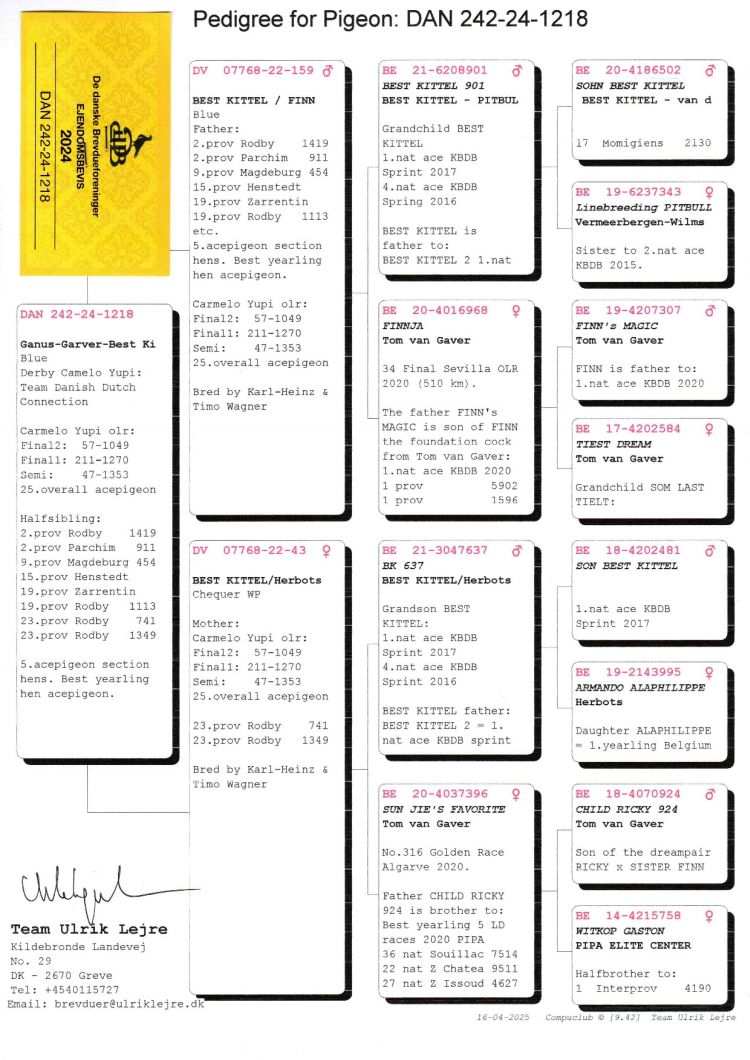 Pedigree for Pigeon: DAN 242-24-1218
De danske Brevdueforeninger
EJENDOMSBEVIS
2024
DAN 242-24-1218
DAN 242-24-1218
Ganus-Garver-Best Ki
Blue
Derby Camelo Yupi:
Team Danish Dutch
Connection
Carmelo Yupi olr:
Final2: 57-1049
Final1: 211-1270
Semi: 47-1353
25.overall acepigeon
Halfsibling:
2.prov Rodby 1419
2.prov Parchim 911
9.prov Magdeburg 454
15.prov Henstedt
19.prov Zarrentin
19.prov Rodby 1113
23.prov Rodby 741
23.prov Rodby 1349
5.acepigeon section
hens. Best yearling
hen acepigeon.
DV 07768-22-159 ♂
BEST KITTEL / FINN
Blue
Father:
2.prov Rodby 1419
2.prov Parchim 911
9.prov Magdeburg 454
15.prov Henstedt
19.prov Zarrentin
19.prov Rodby 1113
etc.
5.acepigeon section
hen. Best yearling
hen acepigeon.
Carmelo Yupi olr:
Final2: 57-1049
Final1: 211-1270
Semi: 47-1353
25.overall acepigeon
Bred by Karl-Heinz &
Timo Wagner
DV 07768-22-43 ♀
BEST KITTEL/Herbots
Chequer WP
Mother:
Carmelo Yupi olr:
Final2: 57-1049
Final1: 211-1270
Semi: 47-1353
25.overall acepigeon
23.prov Rodby 741
23.prov Rodby 1349
Bred by Karl-Heinz &
Timo Wagner
BE 21-6208901 ♂
BEST KITTEL 901
BEST KITTEL - PITBUL
Grandchild BEST
KITTEL
1.nat ace KBDB
Sprint 2017
4.nat ace KBDB
Spring 2016
BEST KITTEL is
father to:
BEST KITTEL 2 1.nat
BE 20-4016968 ♀
FINNJA
Tom van Gaver
34 Final Sevilla OLR
2020 (510 km).
The father FINN's
MAGIC is son of FINN
the foundation cock
from Tom van Gaver:
1.nat ace KBDB 2020
1 prov 5902
1 prov 1596
BE 21-3047637 ♂
BK 637
BEST KITTEL/Herbots
Grandson BEST
KITTEL:
1.nat ace KBDB
Sprint 2017
4.nat ace KBDB
Sprint 2016
BEST KITTEL father:
BEST KITTEL 2 = 1.
nat ace KBDB sprint
BE 20-4037396 ♀
SUN JIE'S FAVORITE
Tom van Gaver
No.316 Golden Race
Algarve 2020.
Father CHILD RICKY
924 is brother to:
Best yearling 5 LD
races 2020 PIPA
36 nat Souillac 7514
22 nat Z Chatea 9511
27 nat Z Issoud 4627
BE 20-4186502 ♂
SOHN BEST KITTEL
BEST KITTEL - van d
17 Momigiens 2130
BE 19-6237343 ♀
Linebreeding PITBULL
Vermeerbergen-Wilms
Sister to 2.nat ace
KBDB 2015.
BE 19-4207307 ♂
FINN's MAGIC
Tom van Gaver
FINN is father to:
1.nat ace KBDB 2020
BE 17-4202584 ♀
TIEST DREAM
Tom van Gaver
Grandchild SOM LAST
TIELT:
BE 18-4202481 ♂
SON BEST KITTEL
1.nat ace KBDB
Sprint 2017
BE 19-2143995 ♀
ARMANDO ALAPHILIPPE
Herbots
Daughter ALAPHILIPPE
= 1.yearling Belgium
BE 18-4070924 ♂
CHILD RICKY 924
Tom van Gaver
Son of the dreampair
RICKY x SISTER FINN
BE 14-4215758 ♀
WITKOP GASTON
PIPA ELITE CENTER
Halfbrother to:
1 Interprov 4190
Team Ulrik Lejre
Kildebronde Landevej
No. 29
DK - 2670 Greve
Tel: +4540115727
Email: brevduer@ulriklejre.dk
16-04-2025 Compuclub © [9.42] Team Ulrik Lejre